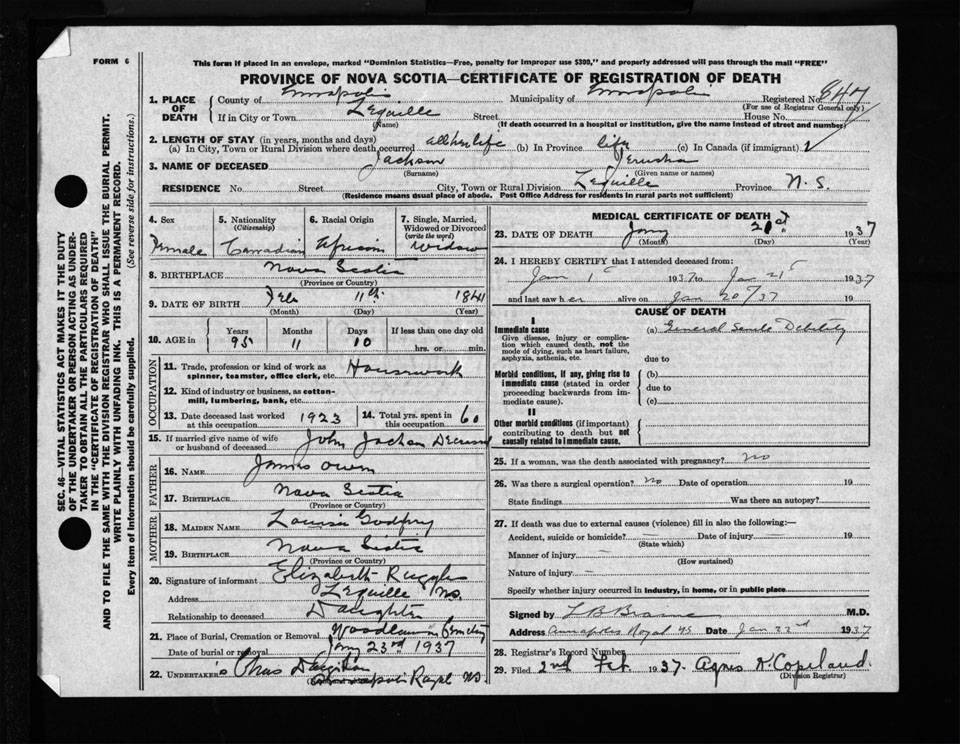 FORM 6
This form if placed in an envelope, marked "Dominion Statistics—Free, penalty for improper use $300," and properly addressed will pass through the mail "FREE"
PROVINCE OF NOVA SCOTIA—CERTIFICATE OF REGISTRATION OF DEATH
SEC. 46—VITAL STATISTICS ACT MAKES IT THE DUTY
OF THE UNDERTAKER OR PERSON ACTING AS UNDER-
TAKER TO OBTAIN ALL THE PARTICULARS REQUIRED
IN THE "CERTIFICATE OF REGISTRATION OF DEATH"
AND TO FILE THE SAME WITH THE DIVISION REGISTRAR WHO SHALL ISSUE THE BURIAL PERMIT.
WRITE PLAINLY WITH UNFADING INK. THIS IS A PERMANENT RECORD.
Every item of Information should be carefully supplied. (See reverse side for instructions.)
1. PLACE OF DEATH County of Annapolis Municipality of Annapolis Registered No. 847
(For use of Registrar General only)
If in City or Town Lequille Street House No.
(Name) (If death occurred in a hospital or institution, give the name instead of street and number)
2. LENGTH OF STAY (in years, months and days)
(a) In City, Town or Rural Division where death occurred all her life (b) In Province life (c) In Canada (if immigrant)
3. NAME OF DECEASED Jackson Jerusha
(Surname) (Given name or names)
RESIDENCE No. Street City, Town or Rural Division Lequille Province N. S.
(Residence means usual place of abode. Post Office Address for residents in rural parts not sufficient)
4. Sex Female
5. Nationality (Citizenship) Canadian
6. Racial Origin African
7. Single, Married, Widowed or Divorced (write the word) Widow
8. BIRTHPLACE Nova Scotia
(Province or Country)
9. DATE OF BIRTH Feb 11th 1841
(Month) (Day) (Year)
10. AGE in Years 95 Months 11 Days 10 If less than one day old hrs. or min.
OCCUPATION
11. Trade, profession or kind of work as spinner, teamster, office clerk, etc. Housework
12. Kind of industry or business, as cotton-mill, lumbering, bank, etc.
13. Date deceased last worked at this occupation 1923
14. Total yrs. spent in this occupation 60
15. If married give name of wife or husband of deceased John Jackson Deceased
FATHER
16. NAME James Owen
17. BIRTHPLACE Nova Scotia
(Province or Country)
MOTHER
18. MAIDEN NAME Louisa Godfrey
19. BIRTHPLACE Nova Scotia
(Province or Country)
20. Signature of informant Elizabeth Ruggles
Address Lequille NS.
Relationship to deceased Daughter
21. Place of Burial, Cremation or Removal Woodlawn Cemetery
Date of burial or removal Jany 23rd 1937
22. UNDERTAKER'S Chas
Annapolis Royal NS.
MEDICAL CERTIFICATE OF DEATH
23. DATE OF DEATH Jany 21st 1937
(Month) (Day) (Year)
24. I HEREBY CERTIFY that I attended deceased from:
Jan 1st 1937 to Jan 21st 1937
and last saw her alive on Jan 20/37 19
CAUSE OF DEATH
I
Immediate cause (a) General Senile Debility
Give disease, injury or complica-
tion which caused death, not the
mode of dying, such as heart failure,
asphyxia, asthenia, etc.
due to
Morbid conditions, if any, giving rise to
immediate cause (stated in order
proceeding backwards from im-
mediate cause).
(b)
due to
(c)
II
Other morbid conditions (if important)
contributing to death but not
causally related to immediate cause.
25. If a woman, was the death associated with pregnancy? no
26. Was there a surgical operation? no Date of operation 19
State findings Was there an autopsy?
27. If death was due to external causes (violence) fill in also the following:—
Accident, suicide or homicide? — Date of injury — 19
(State which)
Manner of injury —
(How sustained)
Nature of injury —
Specify whether injury occurred in industry, in home, or in public place
Signed by L B Braine M.D.
Address Annapolis Royal NS Date Jan 22nd 1937
28. Registrar's Record Number
29. Filed 2nd Feb. 1937. Agnes V. Copeland.
(Division Registrar)